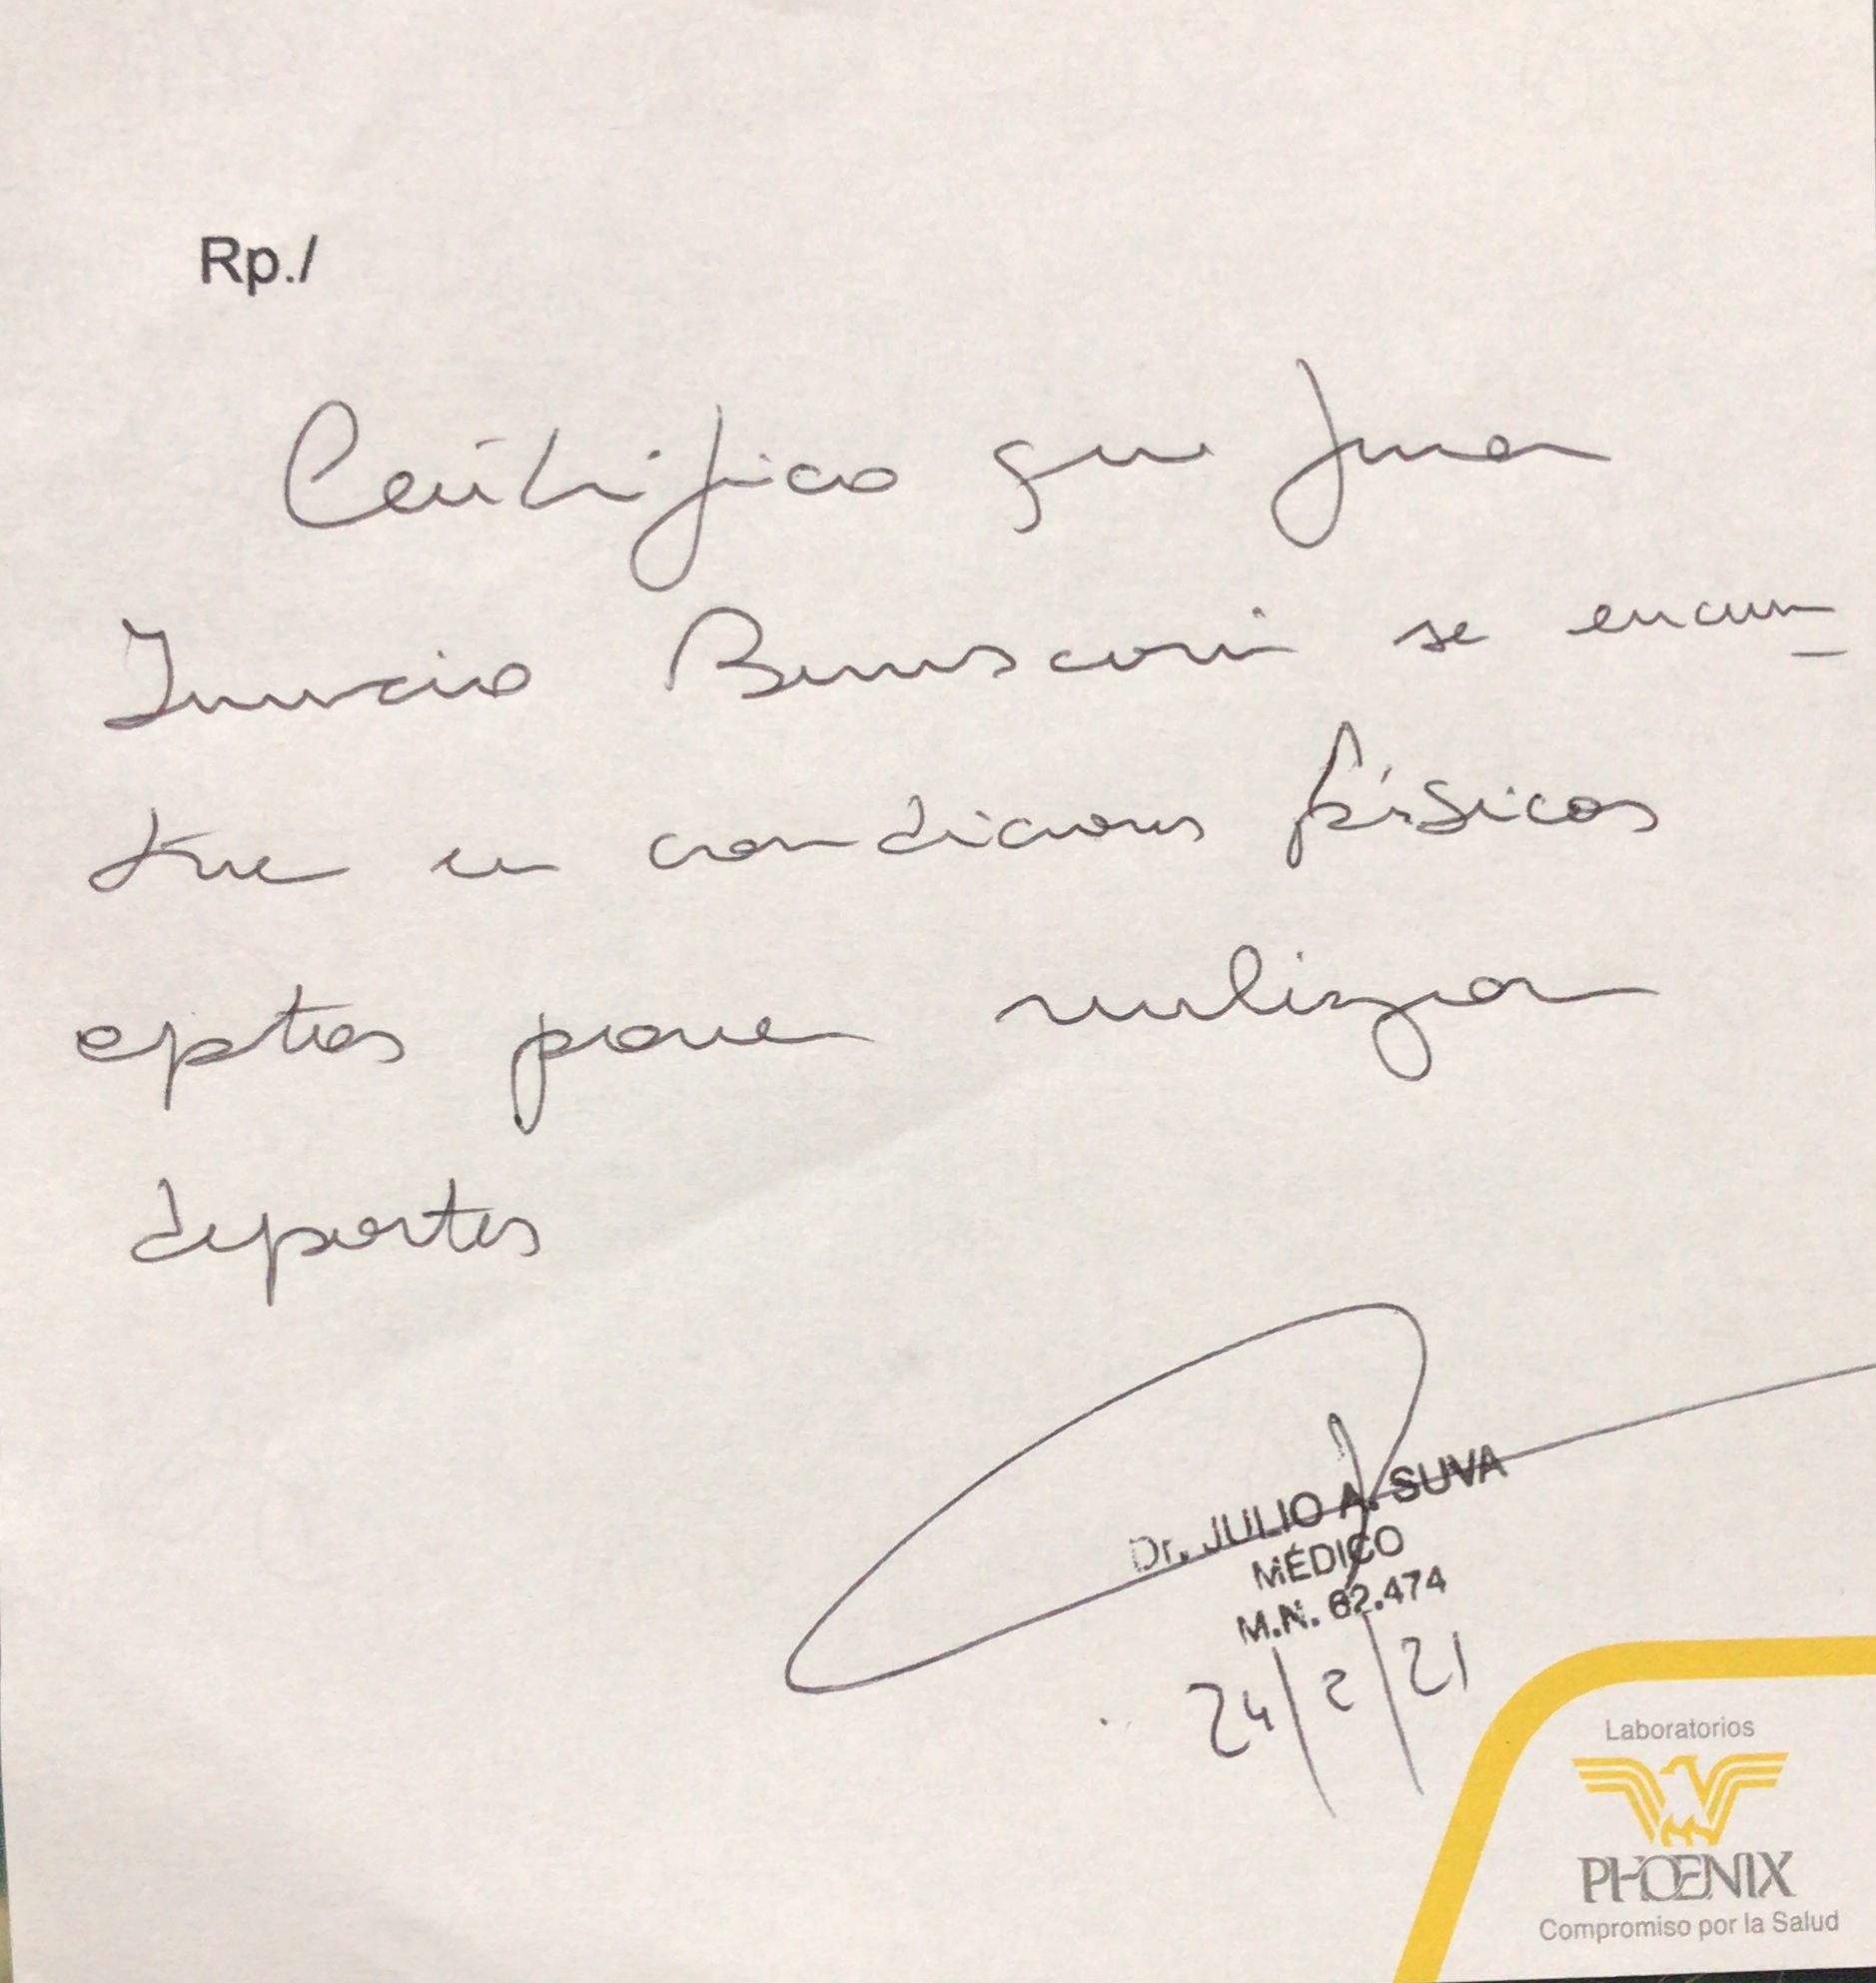 Rp./
Certifico que Juan
Ignacio se encuen-
tra en condiciones físicas
aptas para realizar
deportes
Dr. JULIO A. SUVA
MÉDICO
M.N. 62.474
24/2/21
Laboratorios
PHOENIX
Compromiso por la Salud